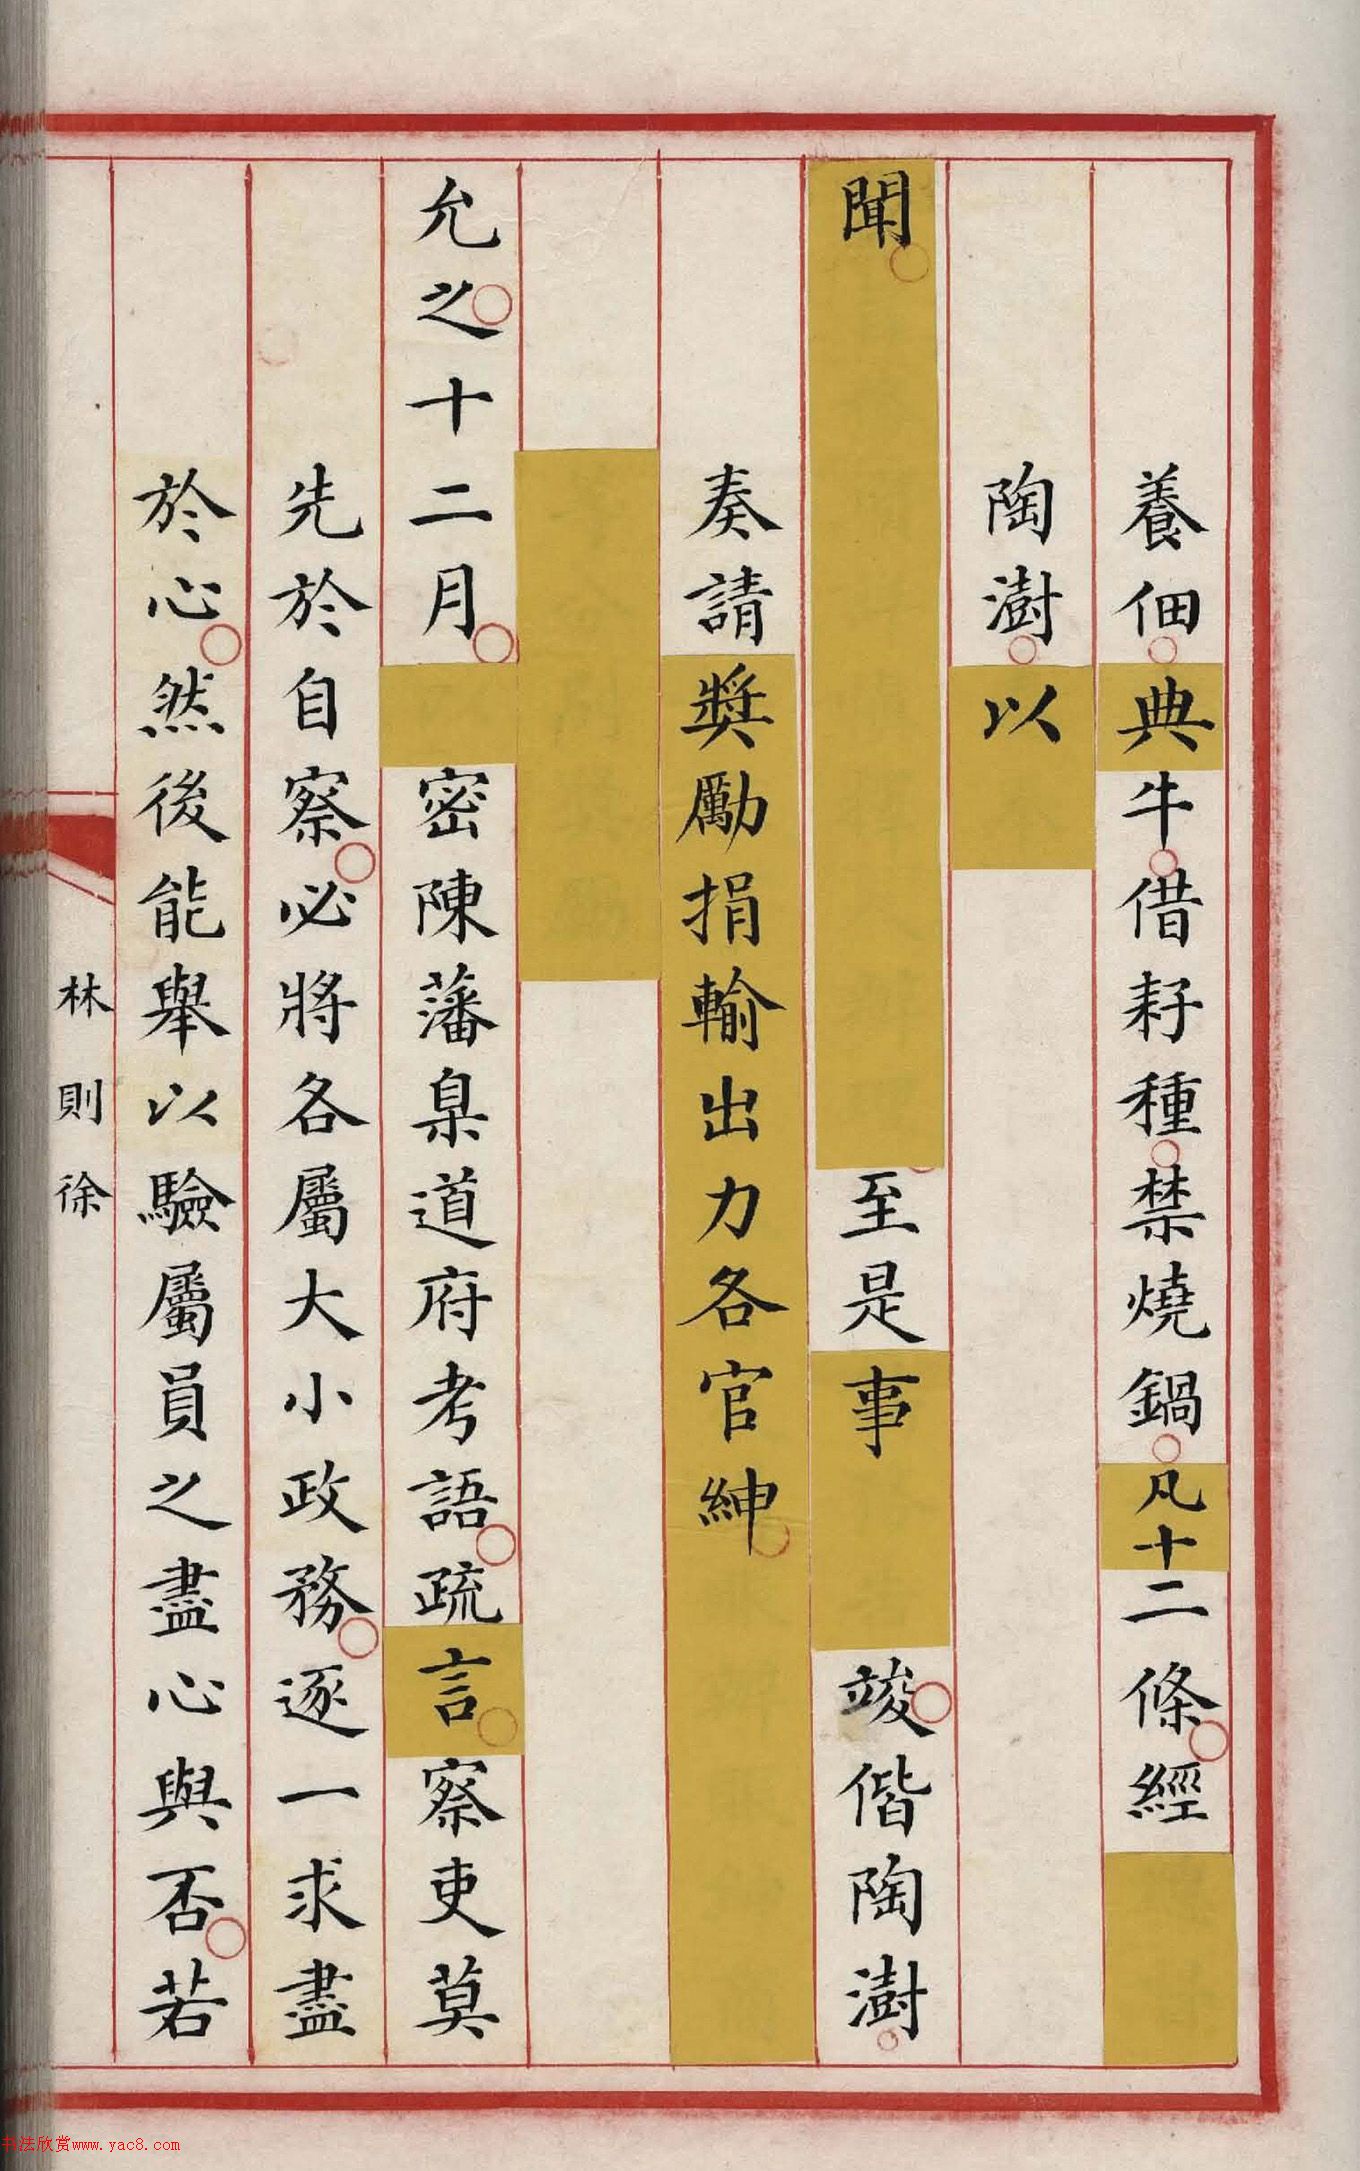 養佃典牛借耔種禁燒鍋凡十二條經
陶澍以
聞至是事竣偕陶澍
奏請奬勵捐輸出力各官紳
允之十二月密陳藩臬道府考語疏言察吏莫
先於自察必將各屬大小政務逐一求盡
於心然後能舉以驗屬員之盡心與否若
林則徐
书法欣赏www.yac8.com